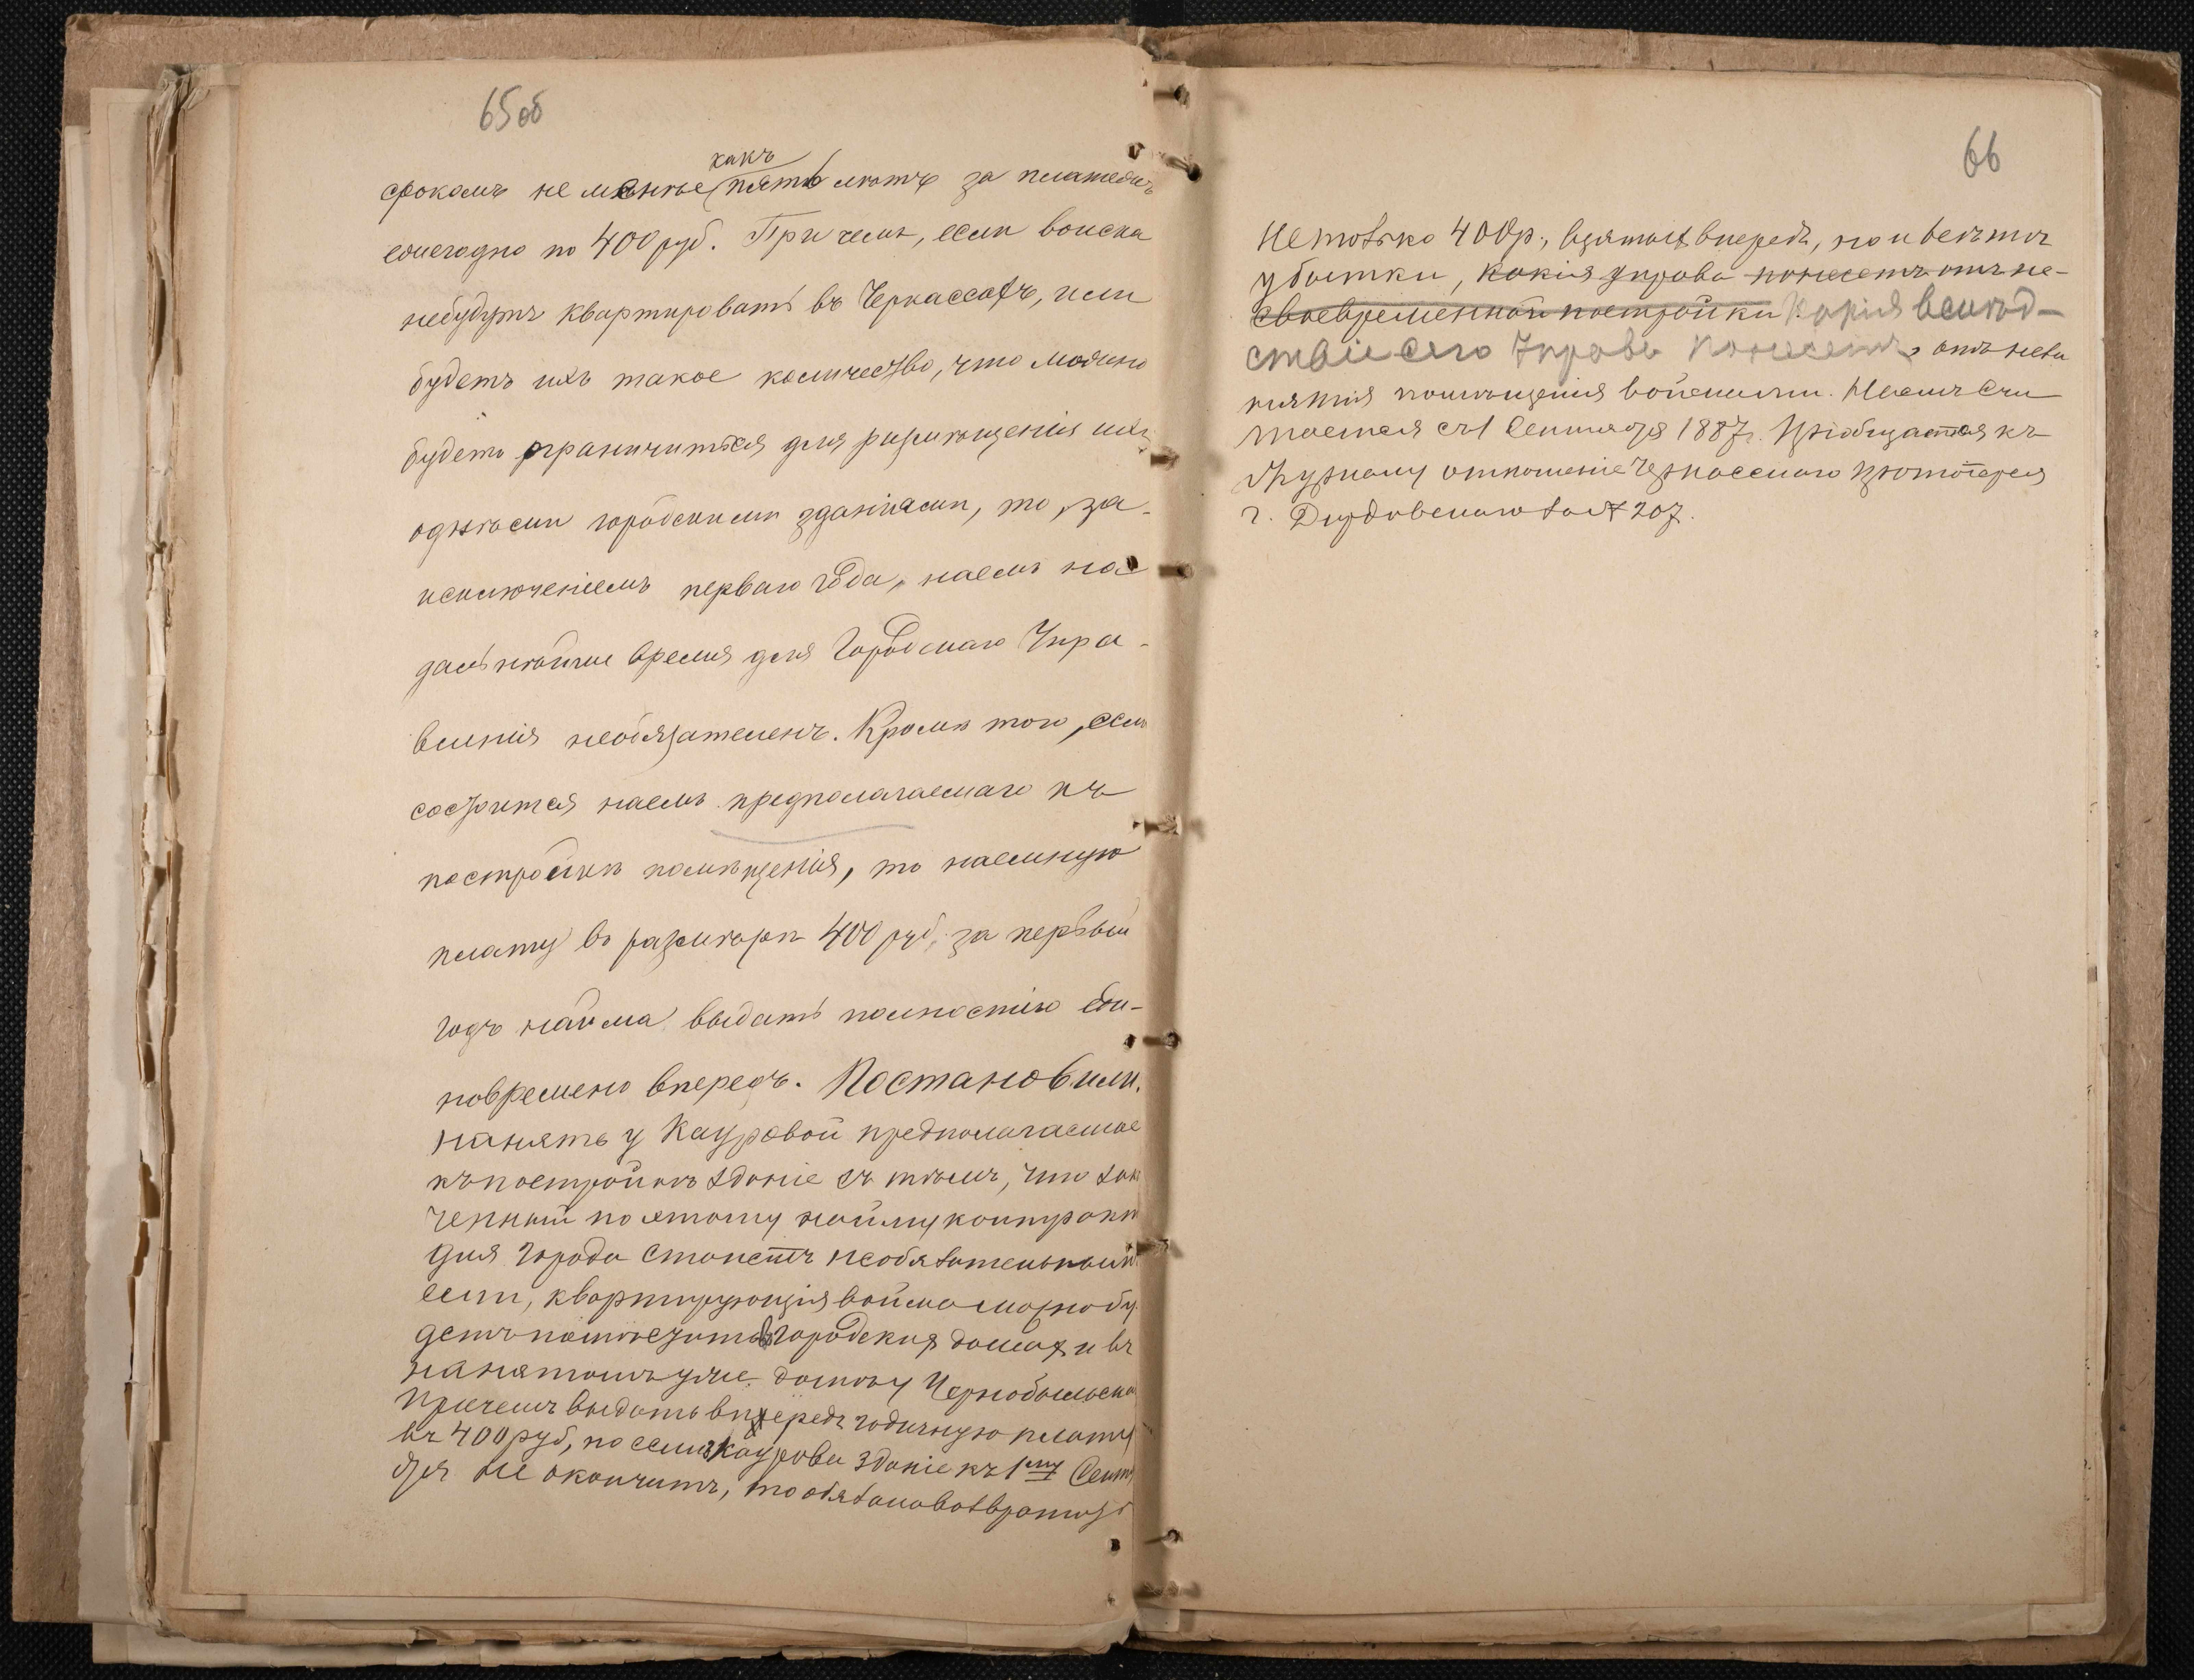 65 об
какъ
срокомъ не менѣе пять лѣтъ за платежъ
ежегодно по 400 руб. При чемъ, если войска
небудутъ квартировать въ Черкассахъ, или
будетъ ихъ такое количество, что можно
будетъ ограничиться для размѣщенія ихъ
однѣми городскими зданіями, то, за-
исключеніемъ перваго года, наемъ на
дальнѣйшее время для Городскаго Упра-
вленія необязателенъ. Кромѣ того, если
состоится наемъ предполагаемаго къ
постройкѣ помѣщенія, то наемную
плату въ размѣрѣ 400 руб. за первый
годъ найма выдать полностію еди-
новремено впередъ. Постановили:
нанять у Кауровой предполагаемое
къ постройкѣ зданіе съ тѣмъ, что заклю
ченный по этому найму контрактъ
для города станетъ необязательный
если, квартирующія войска можно бу
детъ помѣстить въ городскія домах и въ
нанятомъ уже дому у
причемъ выдать впередъ годичную плату
въ 400 руб, но если Каурова зданіе къ 1му Сентя
бря не окончитъ, то обязана возвратить
66
не только 400 р., взятых впередъ, но и всѣ тѣ
убытки, какія управа понесетъ отъ не-
своевременной постройки. Какія вслѣд-
ствіе сего Управа понесетъ, отъ неза
нятія помѣщенія войсками. Наемъ счи
тается съ 1 Сентября 1887 г. Пріобщается къ
журналу отношеніе Черкасскаго протоіерея
г. за № 207.